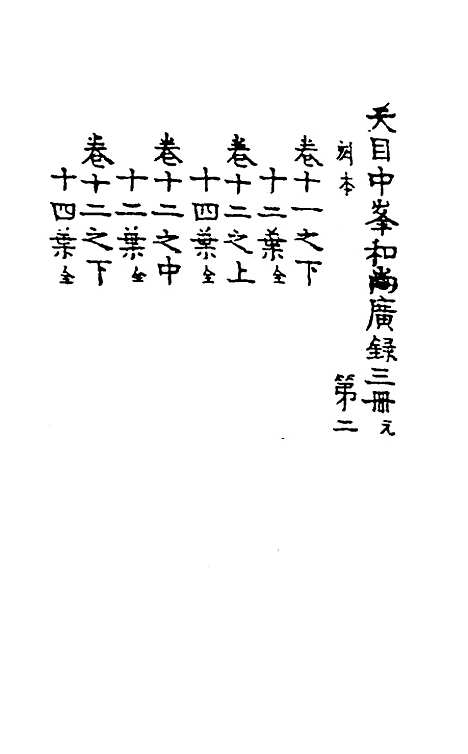 天目中峯和尚廣録三冊元
刻本　第二
卷十一之下
十二葉全
卷十二之上
十四葉全
卷十二之中
十二葉全
卷十二之下
十四葉全